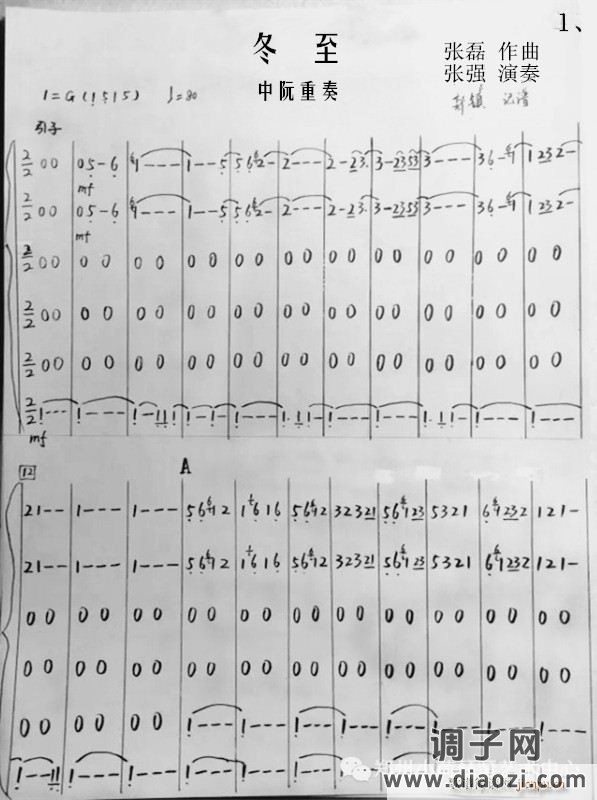 1、
冬 至
张磊 作曲
中阮重奏
张强 演奏
1=G(1515) ♩=80
记谱
引子
2/2 00 | 05-6 | 1--- | 1--5 | 562- | 2--- | 2-23· | 3-2353 | 3--- | 36-1 | 1232-
mf
2/2 00 | 05-6 | 1--- | 1--5 | 562- | 2--- | 2-23· | 3-2353 | 3--- | 36-1 | 1232-
mf
2/2 00 | 00 | 00 | 00 | 00 | 00 | 00 | 00 | 00 | 00 | 00
2/2 00 | 00 | 00 | 00 | 00 | 00 | 00 | 00 | 00 | 00 | 00
2/2 00 | 00 | 00 | 00 | 00 | 00 | 00 | 00 | 00 | 00 | 00
2/2 1--- | 1--- | 1-111 | 1-1- | 1--- | 1-11 | 1--- | 1--- | 1-11- | 1--- | 1---
mf
12
A
21-- | 1--- | 1--- | 5612 | 1616 | 5612 | 32321 | 56123 | 5321 | 61232 | 121-
21-- | 1--- | 1--- | 5612 | 1616 | 5612 | 32321 | 56123 | 5321 | 61232 | 121-
00 | 00 | 00 | 00 | 00 | 00 | 00 | 00 | 00 | 00 | 00
00 | 00 | 00 | 00 | 00 | 00 | 00 | 00 | 00 | 00 | 00
00 | 00 | 00 | 1--- | 1--- | 1--- | 1--- | 1--- | 1--- | 1--- | 1---
1--11 | 1--- | 1--- | 1--- | 1--- | 1--- | 1---
调子网
www.diaozi.com